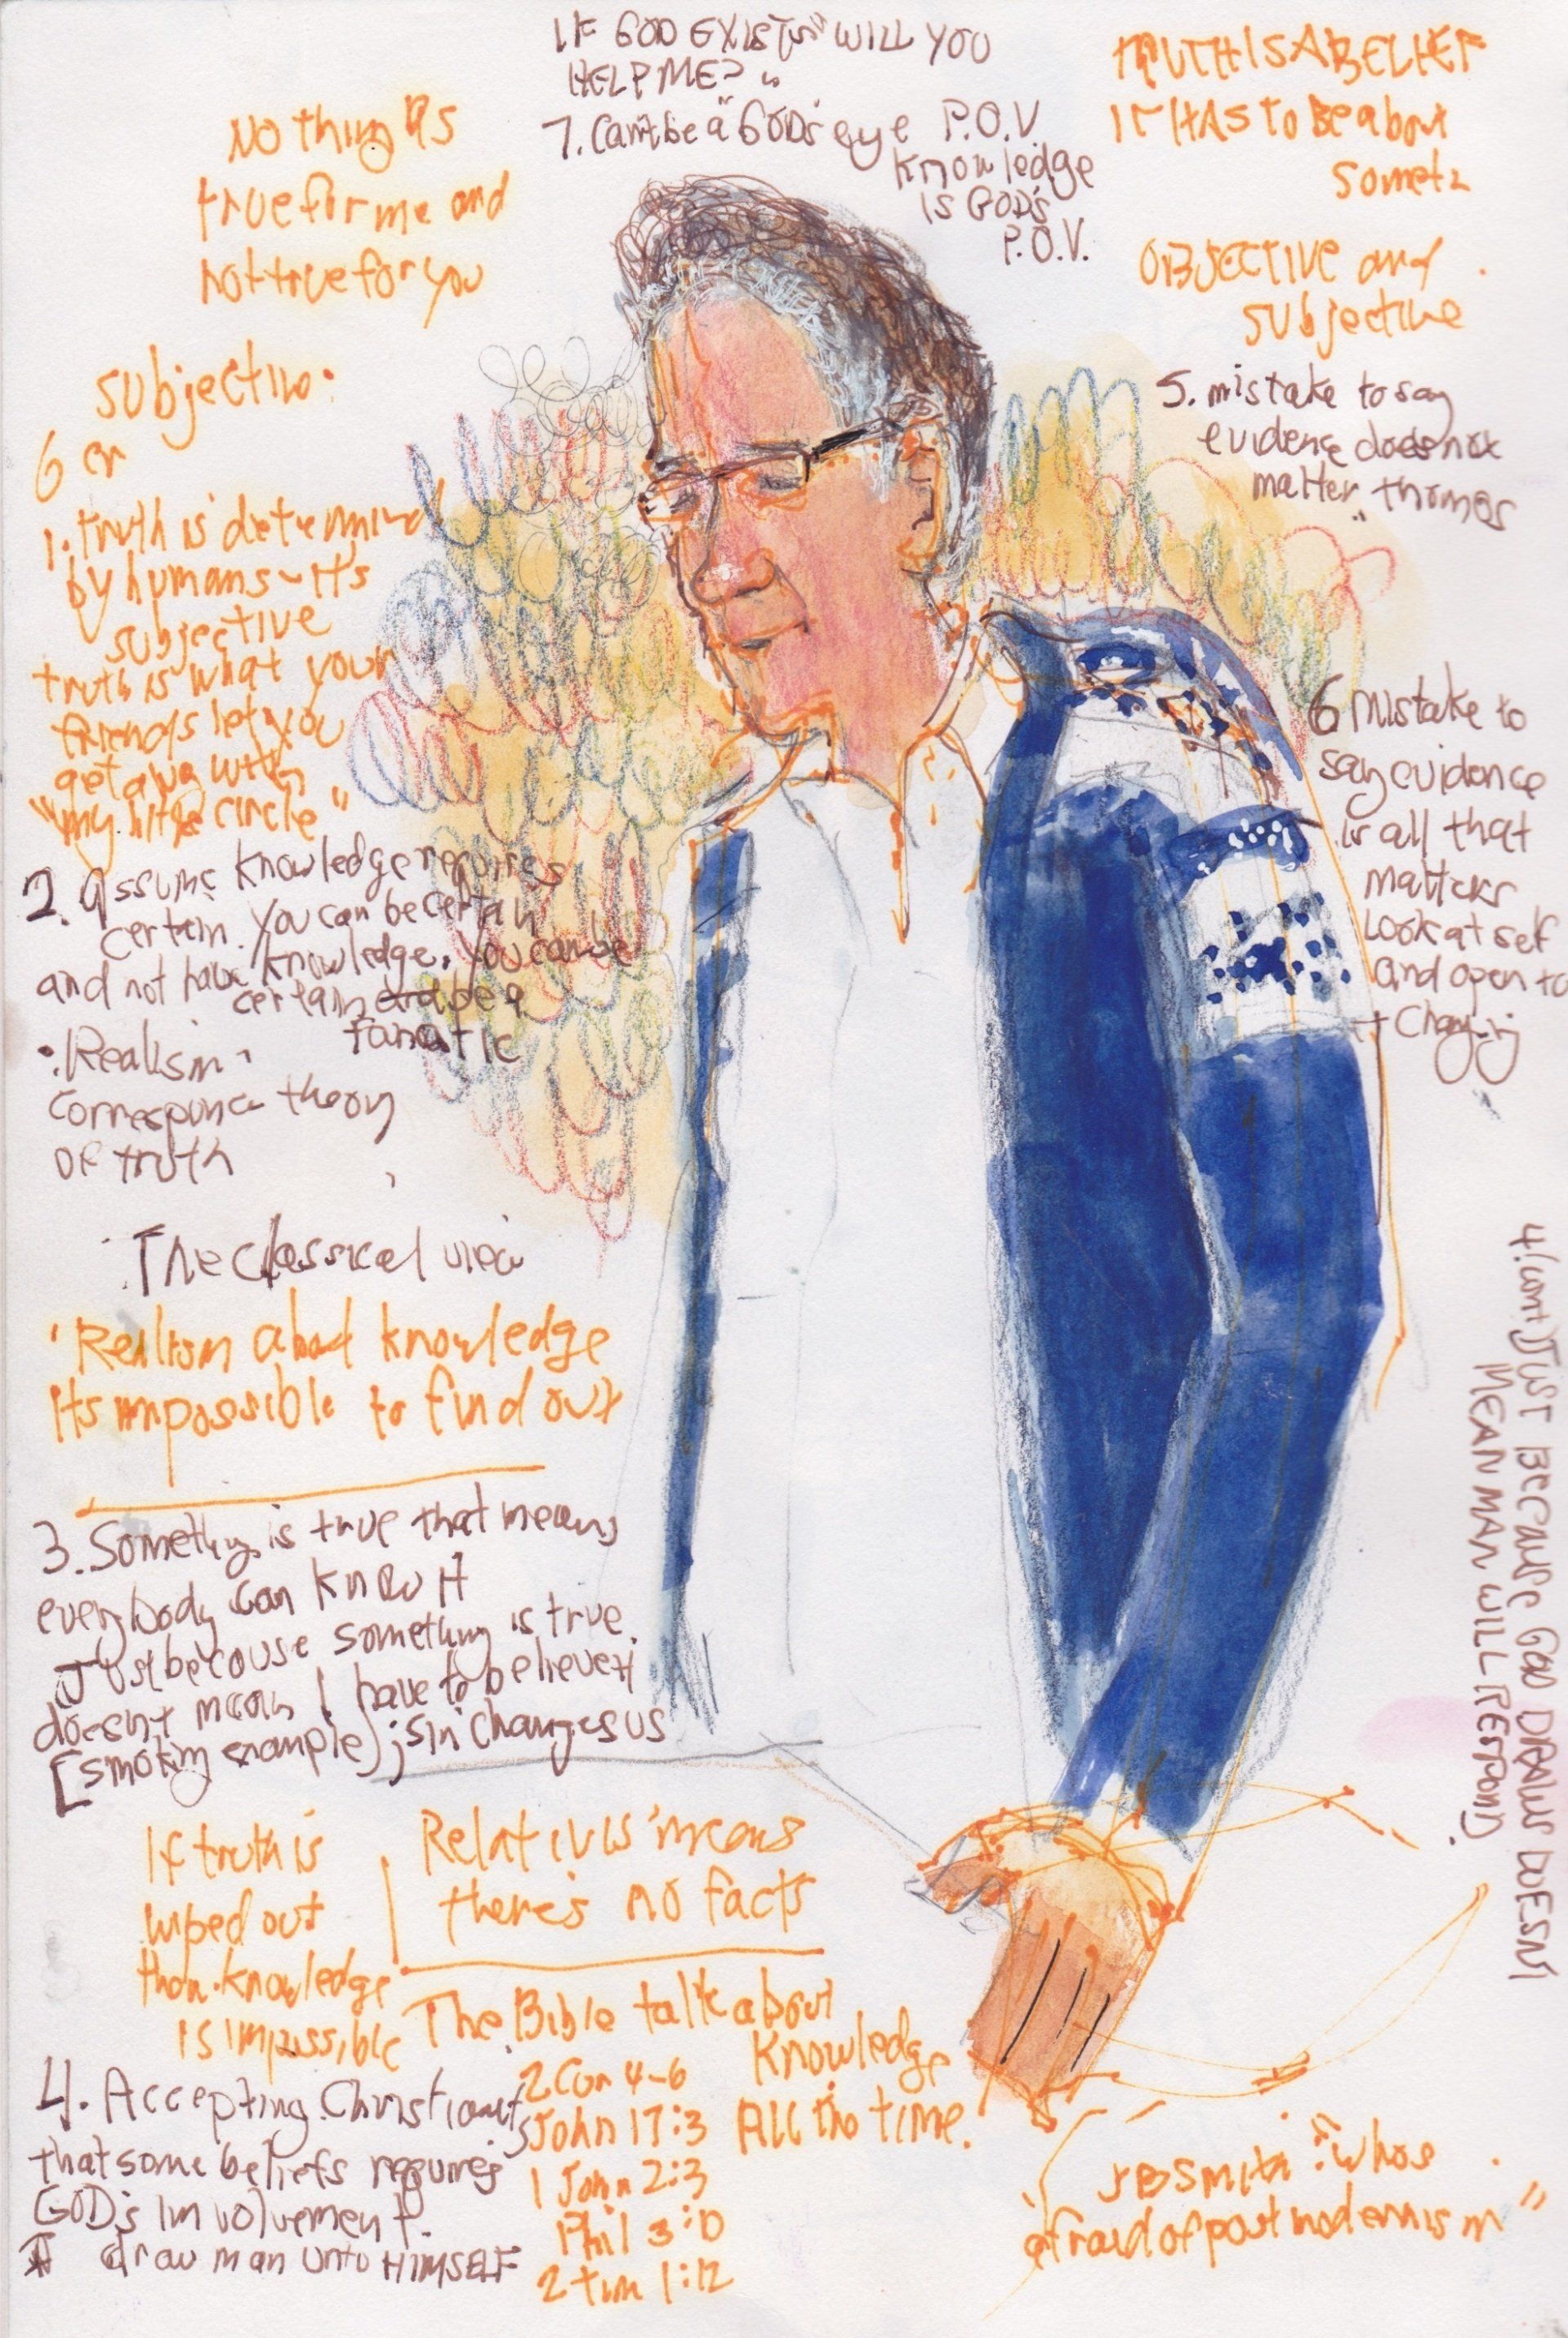 IF GOD EXISTS "WILL YOU
HELP ME?"
7. Can't be a "GOD's eye P.O.V.
Knowledge
is GOD's
P.O.V.
NOthing is
true for me and
not true for you
TRUTH IS A BELIEF
IT HAS TO BE about
OBJECTIVE and
subjective
5. mistake to say
evidence does not
matter
6 mistake to
say evidence
is all that
matters
Look at self
and open to
subjective:
6 er
1. truth is determind
by humans - it's
subjective
truth is what your
friends let you
get away with
"my little circle"
2. Assume knowledge requires
certain. You can be certain
and not have knowledge. You can be
certain and be a
fanatic
• Realism
correspance theory
OF truth
The classical view
'Realism about knowledge
its impossible to find out
3. Something is true that means
everybody can know it
Just because something is true
doesn't mean I have to believe it
[smoking example) ; sin changes us
If truth is
wiped out
then knowledge
is impossible
Relativis means
there's no facts
The Bible talk about
Knowledge
All the time.
2 Cor 4-6
John 17:3
1 John 2:3
Phil 3:10
2 tim 1:12
4. Accepting Christianity
that some beliefs requires
GOD's involvement.
draw man unto HIMSELF
4 (cont) JUST BECAUSE GOD DRAWS DOESN'T
MEAN MAN WILL RESPOND.
JB Smith: "whos
afraid of postmodernism"